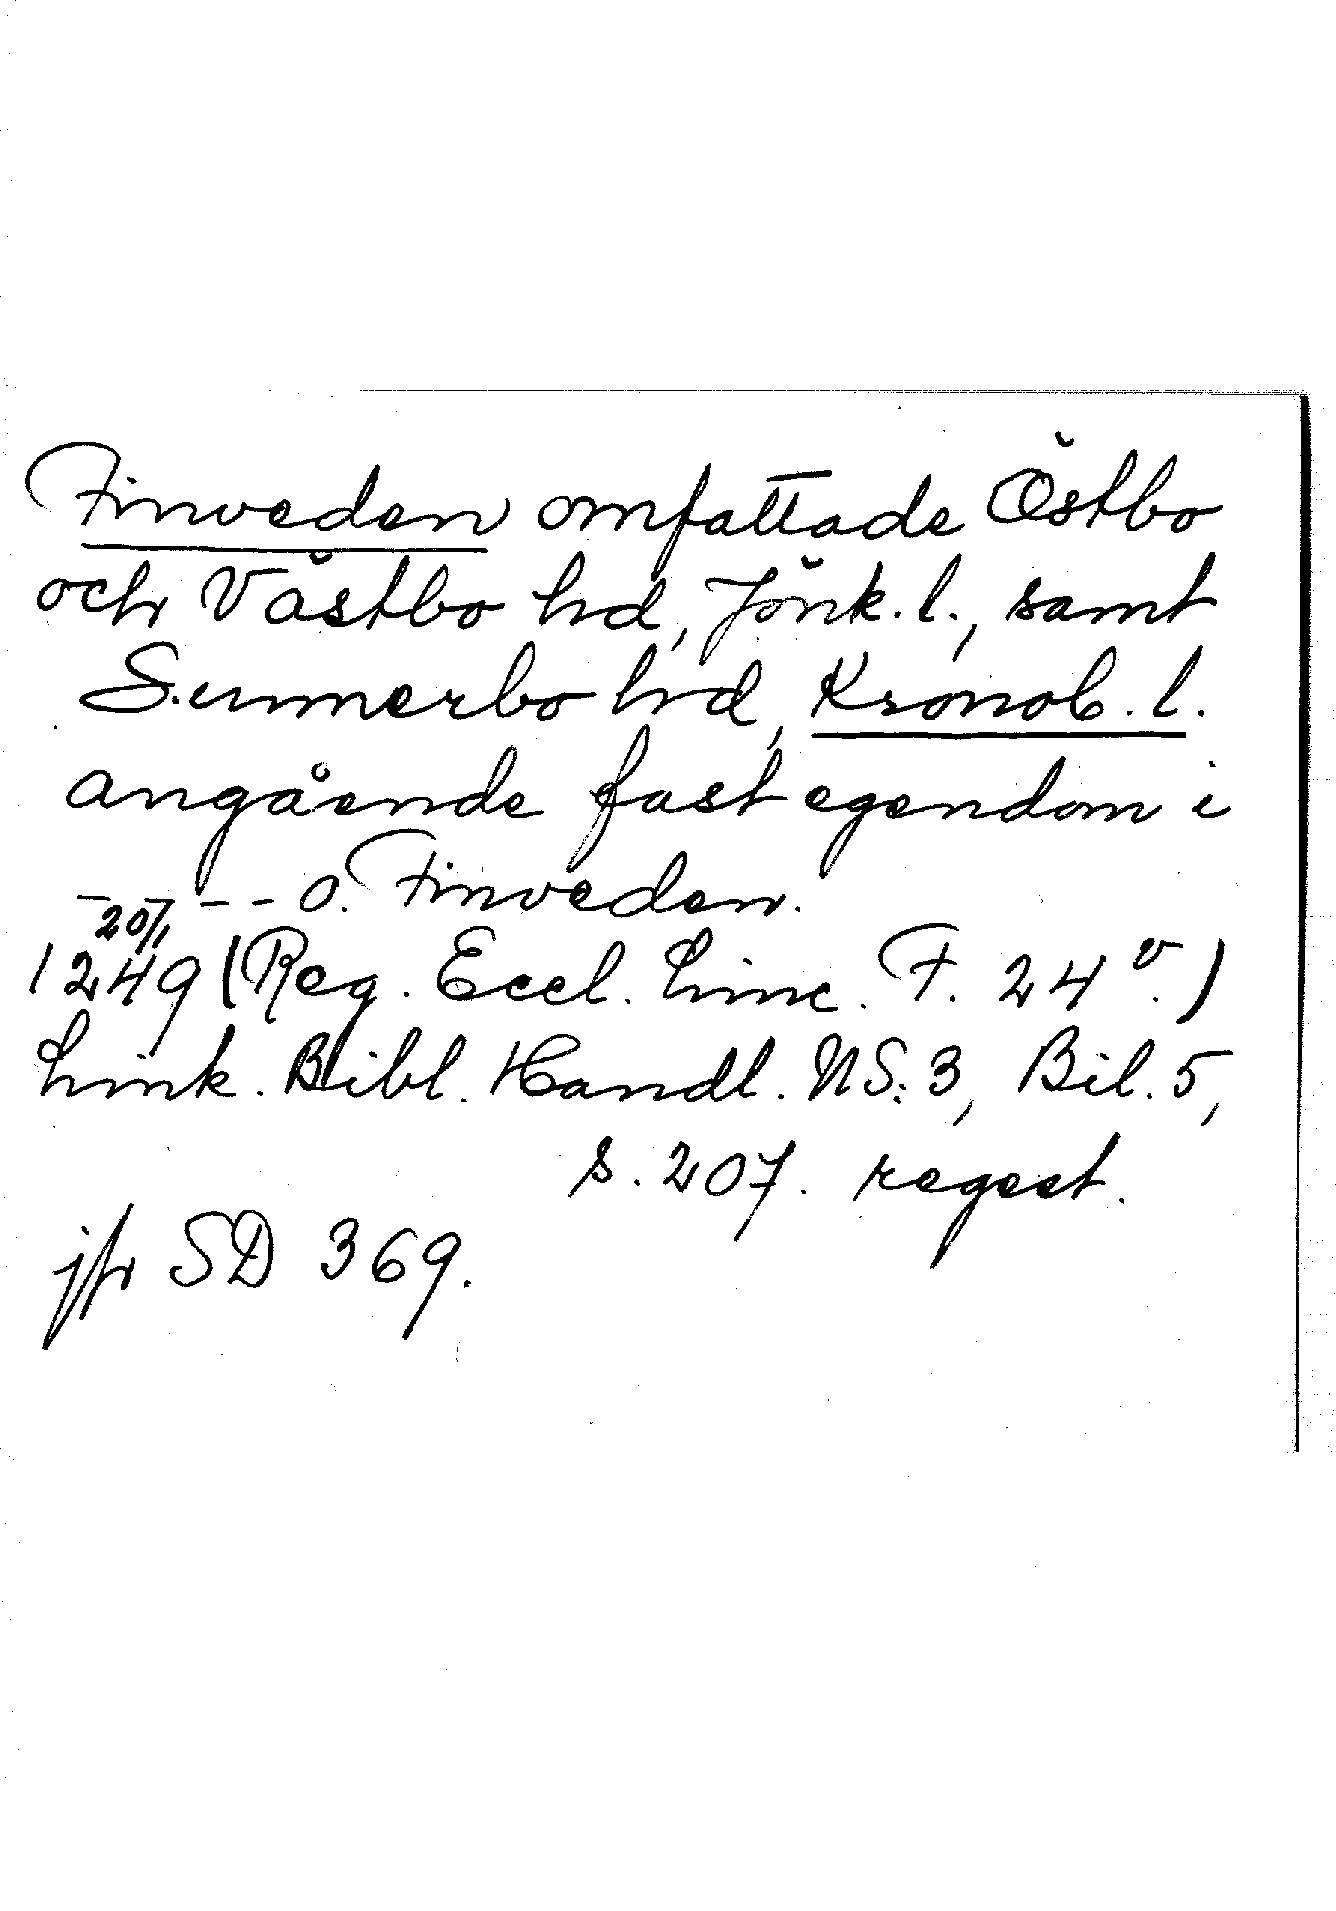 Finveden omfattade Östbo
och Västbo hd, Jönk. l., samt
Sunnerbo hd, Kronob. l.
angående fast egendom i
- - - - o. Finveden.
20/1
1249 (Reg. Eccl. Linc. F. 24 v.)
Link. Bibl. Handl. NS. 3, Bil. 5,
s. 207. regest.
jfr SD 369.